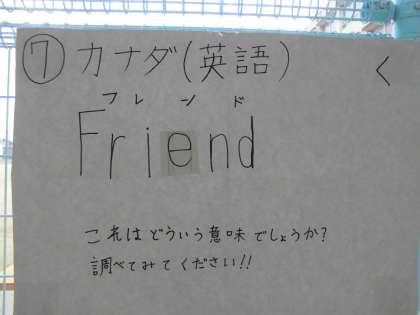 ⑦ カナダ(英語) く
フレンド
Friend
これはどういう意味でしょうか?
調べてみてください!!